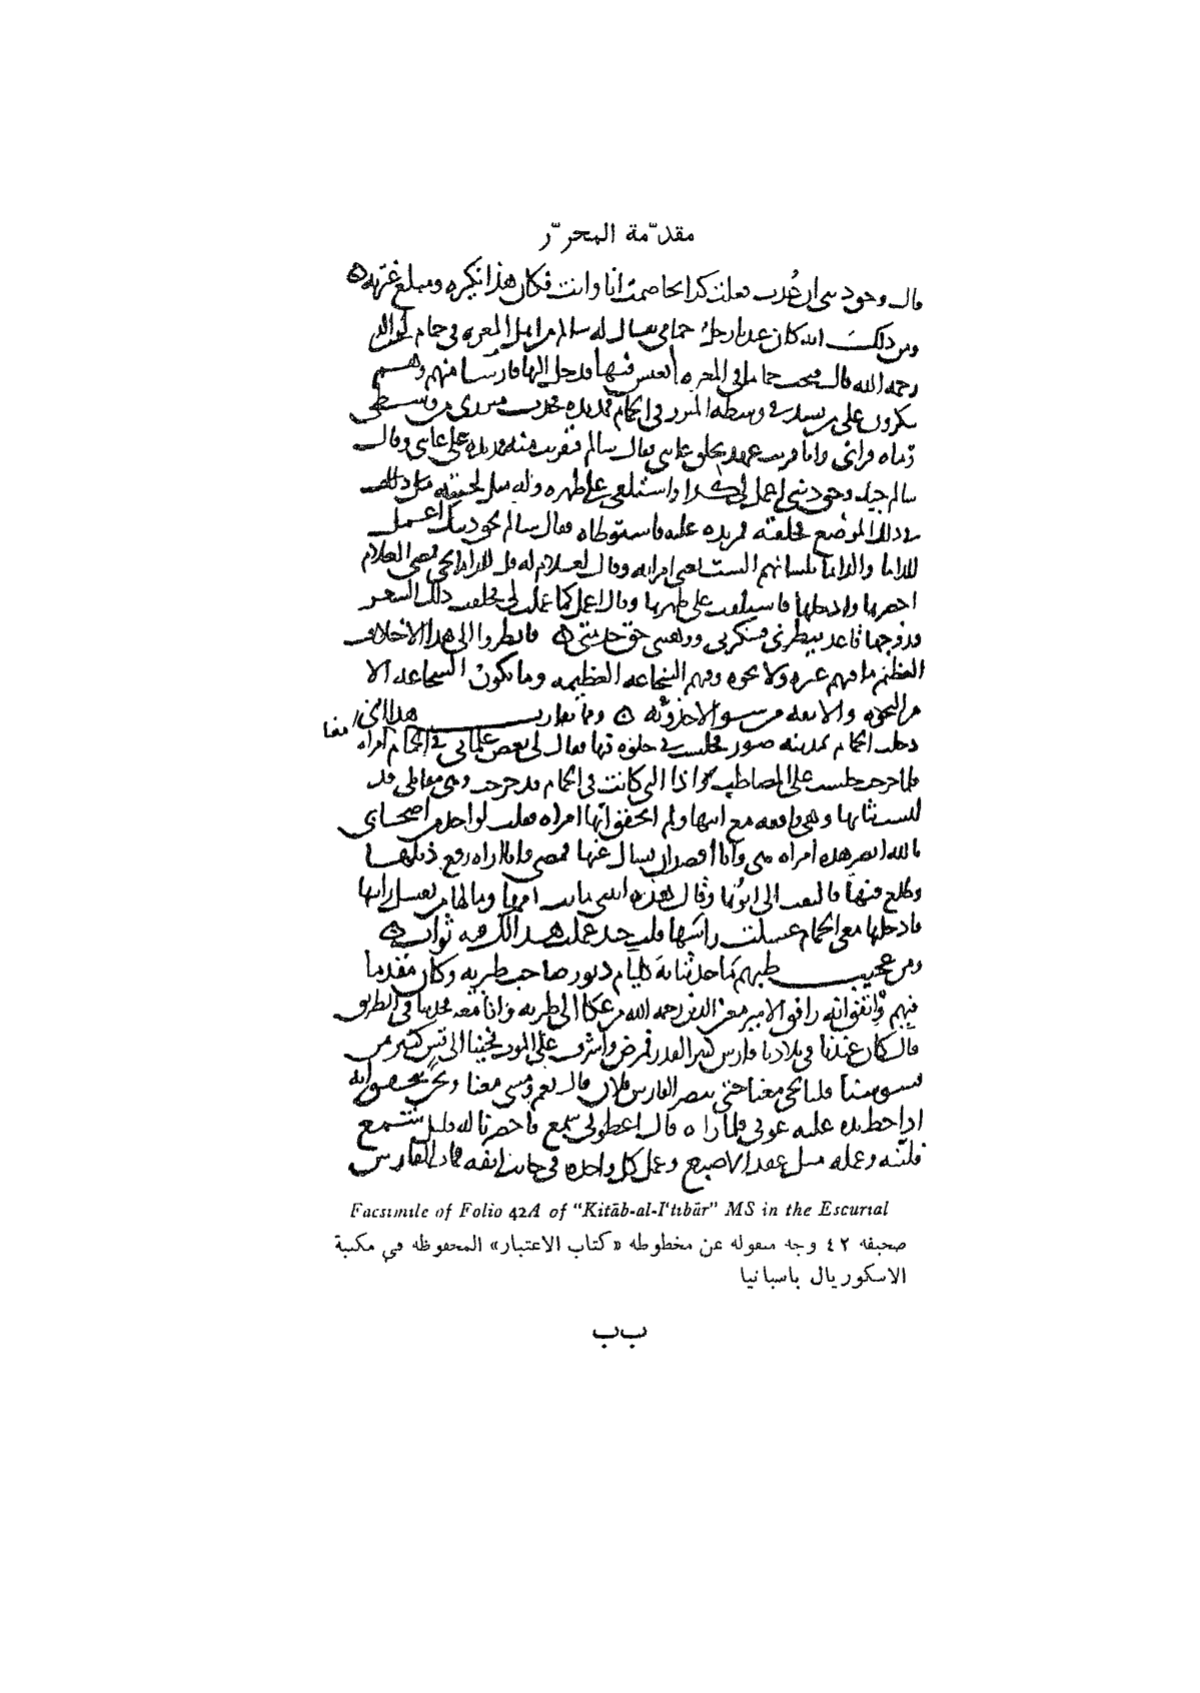 مقدّمة المحرّر
قال وحق ديني ان عدت فعلت كذا تخاصمت انا وانت فكان هذا نكيره ومبلغ غيرته
ومن ذلك انه كان عندنا رجل حمامي يقال له سالم من اهل المعره في حمام لوالدي
رحمه الله قال فتحت حماما في المعره اتعيش فيها فدخل اليها فارس منهم وهم
ينكرون على من يشد في وسطه المئزر في الحمام فمد يده فجذب مئزري من وسطي
رماه فراني وانا قريب عهد بحلق عانتي فقال سالم فتقربت منه فمد يده على عانتي وقال
سالم جيد وحق ديني اعمل لي كذا واستلقى على ظهره وله مثل لحيته في ذلك
في ذلك الموضع فحلقته فمر يده عليه فاستوطاه فقال سالم بحق دينك اعمل
للداما والداما بلسانهم الست يعني امراته وقال لغلام له قل للداما تجي فمضى الغلام
احضرها وادخلها فاستلقت على ظهرها وقال اعمل كما عملت لي فحلقت ذلك الشعر
وزوجها قاعد ينظرني فشكرني ووهبني حق خدمتي فانظروا الى هذا الاختلاف
العظيم ما فيهم غيره ولا نخوه وفيهم الشجاعه العظيمه وما تكون الشجاعه الا
من النخوه والانفه من سوء الاحدوثه ومما يقارب هذا انني
دخلت الحمام بمدينه صور فجلست في خلوه فيها فقال لي بعض غلماني في الحمام معنا امراه
فلما خرجت جلست على المصاطب واذا التي كانت في الحمام قد خرجت وهي مقابلي قد
لبست ثيابها وهي واقفه مع ابيها ولم اتحقق انها امراه فقلت لواحد من اصحابي
بالله ابصر هذه امراه هي وانا اقصد ان يسال عنها فمضى وانا اراه رفع ذيلها
وطلع فيها فالتفت الي ابوها وقال هذه ابنتي ماتت امها وما لها من يغسل راسها
فادخلتها معي الحمام غسلت راسها قلت جيد عملت هذا لك فيه ثواب
ومن عجيب طبهم ما حدثنا به كليام دبور صاحب طبريه وكان مقدما
فيهم واتفق انه رافق الامير معين الدين رحمه الله من عكا الى طبريه وانا معه فحدثنا في الطريق
قال كان عندنا في بلادنا فارس كبير القدر فمرض واشرف على الموت فجينا الى قس كبير من
قسوسنا قلنا تجي معنا حتى تبصر الفارس فلان قال نعم ومشى معنا ونحن نتحقق انه
اذا حط يده عليه عوفي فلما راه قال اعطوني شمع فاحضرنا له قليل شمع
فلينه وعمله مثل عقد الاصبع وعمل كل واحده في جانب انفه فمات الفارس
Facsimile of Folio 42A of "Kitāb-al-I'tibār" MS in the Escurial
صحيفة ٤٢ وجه منقولة عن مخطوطة «كتاب الاعتبار» المحفوظة في مكتبة
الاسكوريال باسبانيا
ب ب